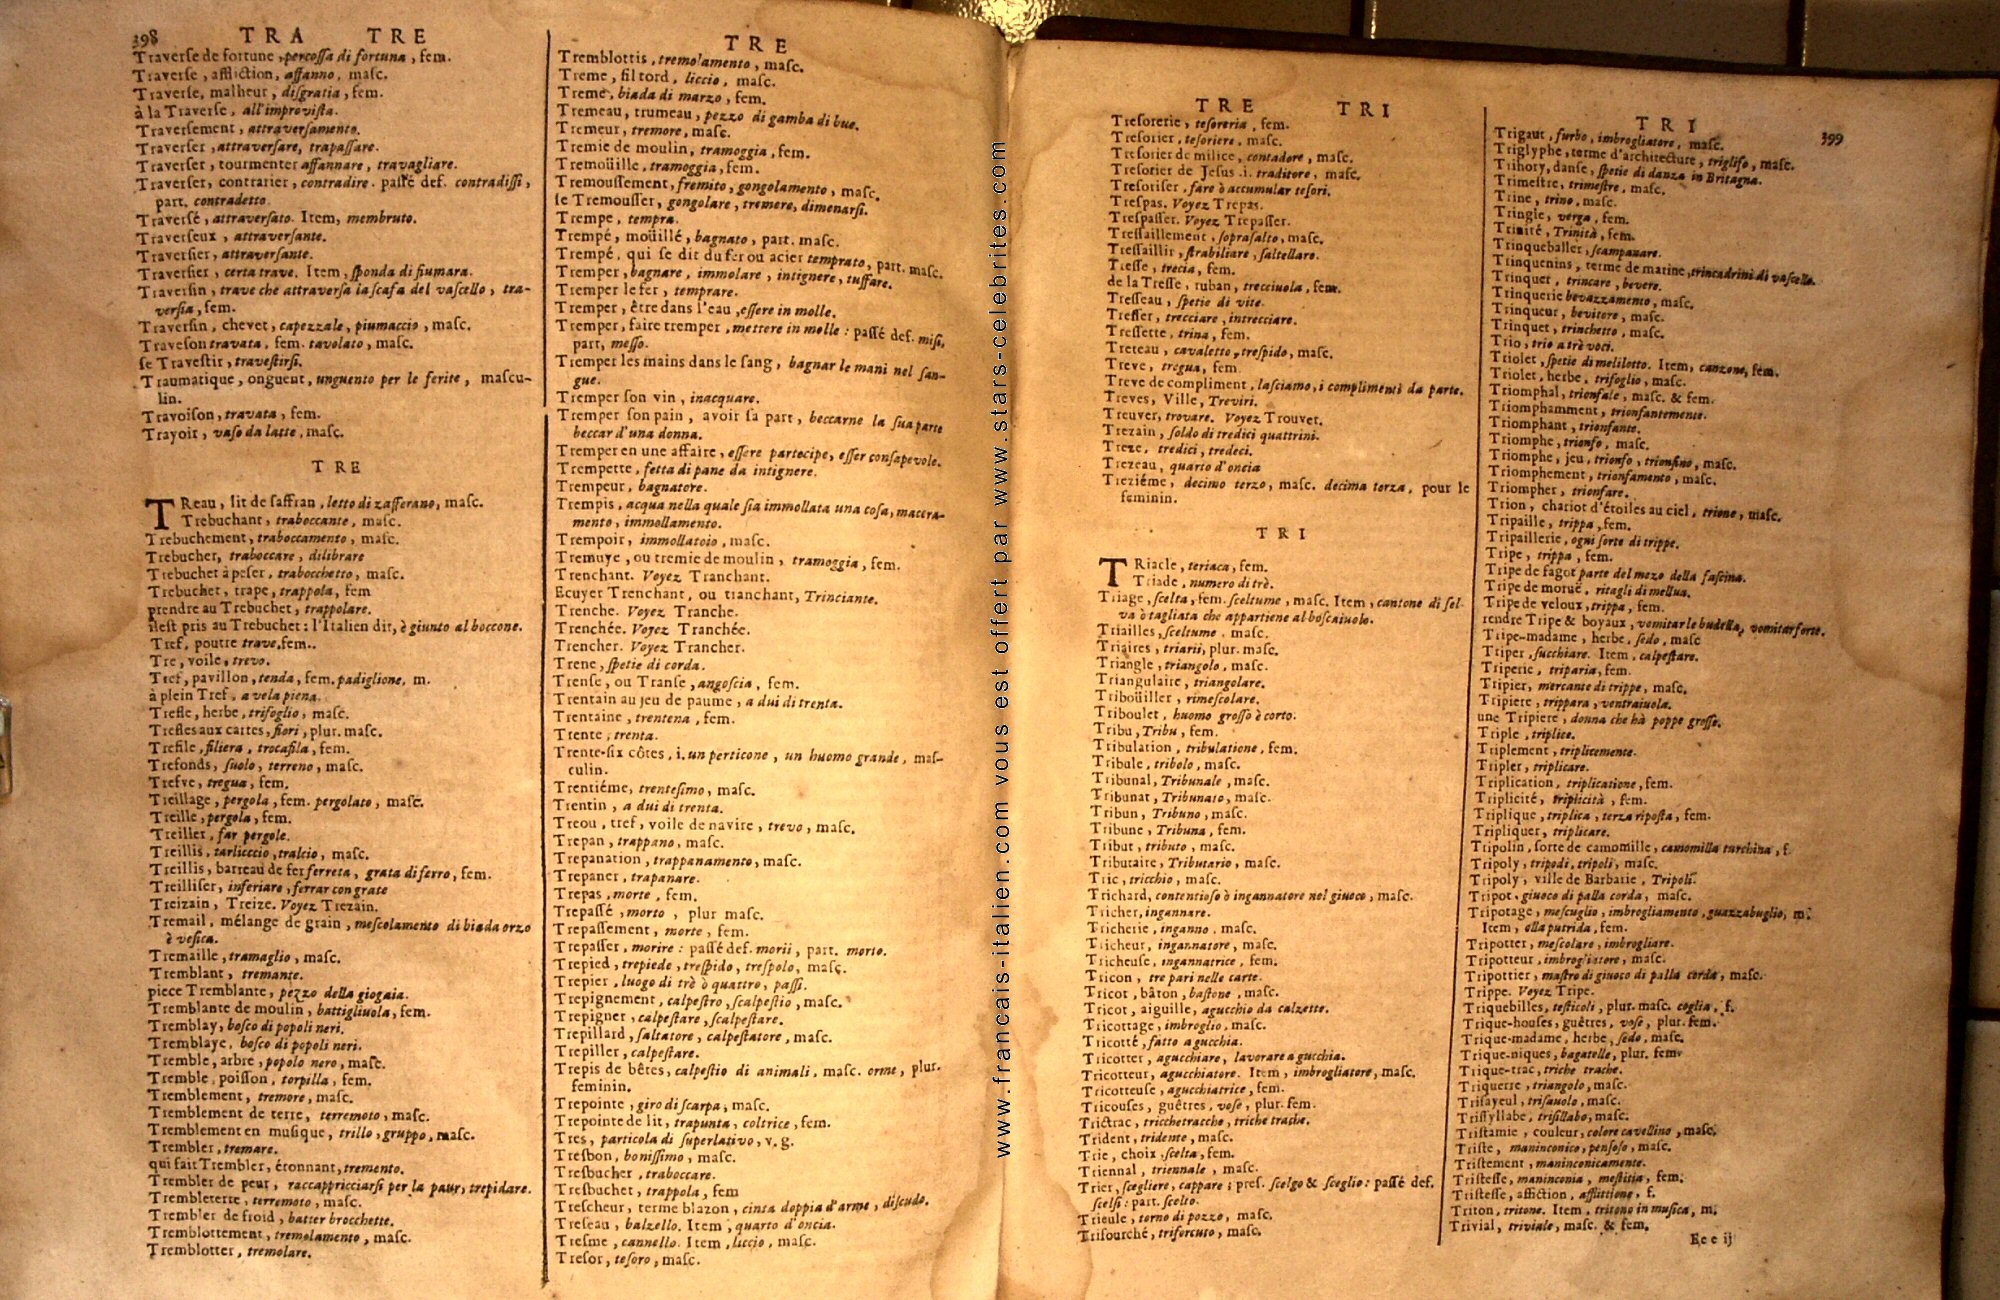 398 TRA TRE
Traverse de fortune, percossa di fortuna, fem.
Traverse, affliction, affanno, masc.
Traverse, malheur, disgratia, fem.
à la Traverse, all'improvista.
Traversement, attraversamento.
Traverser, attraversare, trapassare.
Traverser, tourmenter affannare, travagliare.
Traverser, contrarier, contradire. passé def. contradissi,
part. contradetto.
Traversé, attraversato. Item, membruto.
Traverseux, attraversante.
Traversier, attraversante.
Traversier, certa trave. Item, sponda di fiumara.
Traversin, trave che attraversa la scafa del vascello, tra-
versia, fem.
Traversin, chevet, capezzale, piumaccio, masc.
Traveson travata, fem. tavolato, masc.
se Travestir, travestirsi.
Traumatique, onguent, unguento per le ferite, mascu-
lin.
Travoison, travata, fem.
Trayoir, vaso da latte, masc.
TRE
TReau, lit de saffran, letto di zafferano, masc.
Trebuchant, traboccante, masc.
Trebuchement, traboccamento, masc.
Trebucher, traboccare, dilibrare
Trebuchet à peser, trabocchetto, masc.
Trebuchet, trape, trappola, fem
prendre au Trebuchet, trappolare.
il est pris au Trebuchet: l'Italien dit, è giunto al boccone.
Tref, poutre trave, fem..
Tre, voile, trevo.
Tref, pavillon, tenda, fem. padiglione, m.
à plein Tref, a vela piena.
Trefle, herbe, trifoglio, masc.
Trefles aux cartes, fiori, plur. masc.
Trefile, filiera, trocafila, fem.
Trefonds, suolo, terreno, masc.
Trefve, tregua, fem.
Treillage, pergola, fem. pergolato, masc.
Treille, pergola, fem.
Treiller, far pergole.
Treillis, tarlicccio, tralcio, masc.
Treillis, barreau de fer ferreta, grata di ferro, fem.
Treilliser, inferiare, ferrar con grate
Treizain, Treize. Voyez Trezain.
Tremail, mélange de grain, mescolamento di biada orzo
è vesica.
Tremaille, tramaglio, masc.
Tremblant, tremante.
piece Tremblante, pezzo della giogaia.
Tremblante de moulin, battigliuola, fem.
Tremblay, bosco di popoli neri.
Tremblaye, bosco di popoli neri.
Tremble, arbre, popolo nero, masc.
Tremble, poisson, torpilla, fem.
Tremblement, tremore, masc.
Tremblement de terre, terremoto, masc.
Tremblement en musique, trillo, gruppo, masc.
Trembler, tremare.
qui fait Trembler, étonnant, tremento.
Trembler de peur, raccapricciarsi per la paur, trepidare.
Trembleterre, terremoto, masc.
Trembler de froid, batter brocchette.
Tremblottement, tremolamento, masc.
Tremblotter, tremolare.
TRE
Tremblottis, tremolamento, masc.
Treme, fil tord, liccio, masc.
Treme, biada di marzo, fem.
Tremeau, trumeau, pezzo di gamba di bue.
Tremeur, tremore, masc.
Tremie de moulin, tramoggia, fem.
Tremoüille, tramoggia, fem.
Tremoussement, fremito, gongolamento, masc.
se Tremousser, gongolare, tremere, dimenarsi.
Trempe, tempra.
Trempé, moüillé, bagnato, part. masc.
Trempé, qui se dit du fer ou acier temprato, part. masc.
Tremper, bagnare, immolare, intignere, tuffare.
Tremper le fer, temprare.
Tremper, être dans l'eau, essere in molle.
Tremper, faire tremper, mettere in molle: passé def. misi,
part, messo.
Tremper les mains dans le sang, bagnar le mani nel san-
gue.
Tremper son vin, inacquare.
Tremper son pain, avoir sa part, beccarne la sua parte
beccar d'una donna.
Tremper en une affaire, essere partecipe, esser consapevole.
Trempette, fetta di pane da intignere.
Trempeur, bagnatore.
Trempis, acqua nella quale sia immollata una cosa, macera-
mento, immollamento.
Trempoir, immollatoio, masc.
Tremuye, ou tremie de moulin, tramoggia, fem.
Trenchant. Voyez Tranchant.
Ecuyer Trenchant, ou tranchant, Trinciante.
Trenche. Voyez Tranche.
Trenchée. Voyez Tranchée.
Trencher. Voyez Trancher.
Trene, spetie di corda.
Trense, ou Transe, angoscia, fem.
Trentain au jeu de paume, a dui di trenta.
Trentaine, trentena, fem.
Trente, trenta.
Trente-six côtes, i. un perticone, un huomo grande, mas-
culin.
Trentiéme, trentesimo, masc.
Trentin, a dui di trenta.
Treou, tref, voile de navire, trevo, masc.
Trepan, trappano, masc.
Trepanation, trappanamento, masc.
Trepaner, trapanare.
Trepas, morte, fem.
Trepassé, morto, plur masc.
Trepassement, morte, fem.
Trepasser, morire: passé def. morii, part. morto.
Trepied, trepiede, trespido, trespolo, masc.
Trepier, luogo di trè ò quattro, passi.
Trepignement, calpestro, scalpestio, masc.
Trepigner, calpestare, scalpestare.
Trepillard, saltatore, calpestatore, masc.
Trepiller, calpestare.
Trepis de bêtes, calpestio di animali, masc. orme, plur.
feminin.
Trepointe, giro di scarpa, masc.
Trepointe de lit, trapunta, coltrice, fem.
Tres, particola di superlativo, v. g.
Tresbon, bonissimo, masc.
Tresbucher, traboccare.
Tresbuchet, trappola, fem
Trescheur, terme blazon, cinta doppia d'arme, discudo.
Treseau, balzello. Item, quarto d'oncia.
Tresme, cannello. Item, liccio, masc.
Tresor, tesoro, masc.
www.francais-italien.com vous est offert par www.stars-celebrites.com
TRE TRI
Tresorerie, tesoreria, fem.
Tresorier, tesoriere, masc.
Tresorier de milice, contadore, masc.
Tresorier de Jesus .i. traditore, masc.
Tresoriser, fare ò accumular tesori.
Trespas. Voyez Trepas.
Trespasser. Voyez Trepasser.
Tressaillement, soprasalto, masc.
Tressaillir, strabiliare, saltellare.
Tresse, trecia, fem.
de la Tresse, ruban, trecciuola, fem.
Tresseau, spetie di vite.
Tresser, trecciare, intrecciare.
Tressette, trina, fem.
Treteau, cavaletto, trespido, masc.
Treve, tregua, fem.
Treve de compliment, lasciamo, i complimenti da parte.
Treves, Ville, Treviri.
Treuver, trovare. Voyez Trouver.
Trezain, soldo di tredici quattrini.
Treze, tredici, tredeci.
Trezeau, quarto d'oncia
Treziéme, decimo terzo, masc. decima terza, pour le
feminin.
TRI
TRiacle, teriaca, fem.
Triade, numero di trè.
Triage, scelta, fem. sceltume, masc. Item, cantone di sel-
va ò tagliata che appartiene al boscaiuolo.
Triailles, sceltume, masc.
Triaires, triarii, plur. masc.
Triangle, triangolo, masc.
Triangulaire, triangolare.
Triboüiller, rimescolare.
Triboulet, huomo grosso è corto.
Tribu, Tribu, fem.
Tribulation, tribulatione, fem.
Tribule, tribolo, masc.
Tribunal, Tribunale, masc.
Tribunat, Tribunato, masc.
Tribun, Tribuno, masc.
Tribune, Tribuna, fem.
Tribut, tributo, masc.
Tributaire, Tributario, masc.
Tric, tricchio, masc.
Trichard, contentioso ò ingannatore nel giuoco, masc.
Tricher, ingannare.
Tricherie, inganno, masc.
Tricheur, ingannatore, masc.
Tricheuse, ingannatrice, fem.
Tricon, tre pari nelle carte.
Tricot, bâton, bastone, masc.
Tricot, aiguille, agucchio da calzette.
Tricottage, imbroglio, masc.
Tricotté, fatto a gucchia.
Tricotter, agucchiare, lavorare a gucchia.
Tricotteur, agucchiatore. Item, imbrogliatore, masc.
Tricotteuse, agucchiatrice, fem.
Tricouses, guêtres, vose, plur. fem.
Trictrac, tricchetracche, triche trache.
Trident, tridente, masc.
Trie, choix, scelta, fem.
Triennal, triennale, masc.
Trier, scegliere, cappare; pres. scelgo & sceglio: passé def.
scelsi: part. scelto.
Trieule, torno di pozzo, masc.
Trifourché, triforcuto, masc.
TRI 399
Trigaut, furbo, imbrogliatore, masc.
Triglyphe, terme d'architecture, triglifo, masc.
Trihory, danse, spetie di danza in Britagna.
Trimestre, trimestre, masc.
Trine, trino, masc.
Tringle, verga, fem.
Trinité, Trinità, fem.
Trinqueballer, scampanare.
Trinquenins, terme de marine, trincadrini di vascello.
Trinquer, trincare, bevere.
Trinquerie bevazzamento, masc.
Trinqueur, bevitore, masc.
Trinquet, trinchetto, masc.
Trio, trio a trè voci.
Triolet, spetie di meliloto. Item, canzone, fem.
Triolet, herbe, trifoglio, masc.
Triomphal, trionfale, masc. & fem.
Triomphamment, trionfantemente.
Triomphant, trionfante.
Triomphe, trionfo, masc.
Triomphe, jeu, trionfo, trionfino, masc.
Triomphement, trionfamento, masc.
Triompher, trionfare.
Trion, chariot d'étoiles au ciel, trione, masc.
Tripaille, trippa, fem.
Tripaillerie, ogni sorte di trippe.
Tripe, trippa, fem.
Tripe de fagot parte del mezo della fascina.
Tripe de moruë, ritagli di mellua.
Tripe de veloux, trippa, fem.
rendre Tripe & boyaux, vomitar le budella, vomitar forte.
Tripe-madame, herbe, sedo, masc
Triper, succhiare. Item, calpestare.
Triperie, triparia, fem.
Tripier, mercante di trippe, masc.
Tripiere, trippara, ventraiuola.
une Tripiere, donna che hà poppe grosse.
Triple, triplice.
Triplement, triplicemente.
Tripler, triplicare.
Triplication, triplicatione, fem.
Triplicité, triplicità, fem.
Triplique, triplica, terza riposta, fem.
Tripliquer, triplicare.
Tripolin, sorte de camomille, camomilla turchina, f.
Tripoly, tripodi, tripoli, masc.
Tripoly, ville de Barbarie, Tripoli.
Tripot, giuoco di palla corda, masc.
Tripotage, mescuglio, imbrogliamento, guazzabuglio, m.
Item, olla putrida, fem.
Tripotter, mescolare, imbrogliare.
Tripotteur, imbrogliatore, masc.
Tripottier, mastro di giuoco di palla corda, masc.
Trippe. Voyez Tripe.
Triquebilles, testicoli, plur. masc. coglia, f.
Trique-houses, guêtres, vose, plur. fem.
Trique-madame, herbe, sedo, masc.
Trique-niques, bagatelle, plur. fem.
Trique-trac, triche trache.
Triquerre, triangolo, masc.
Trisayeul, trisauolo, masc.
Trissyllabe, trisillabo, masc.
Tristamie, couleur, colore cavellino, masc.
Triste, maninconico, pensoso, masc.
Tristement, maninconicamente.
Tristesse, maninconia, mestitia, fem.
Tristesse, affliction, afflittione, f.
Triton, tritone. Item, tritono in musica, m.
Trivial, triviale, masc. & fem.
Eee ij